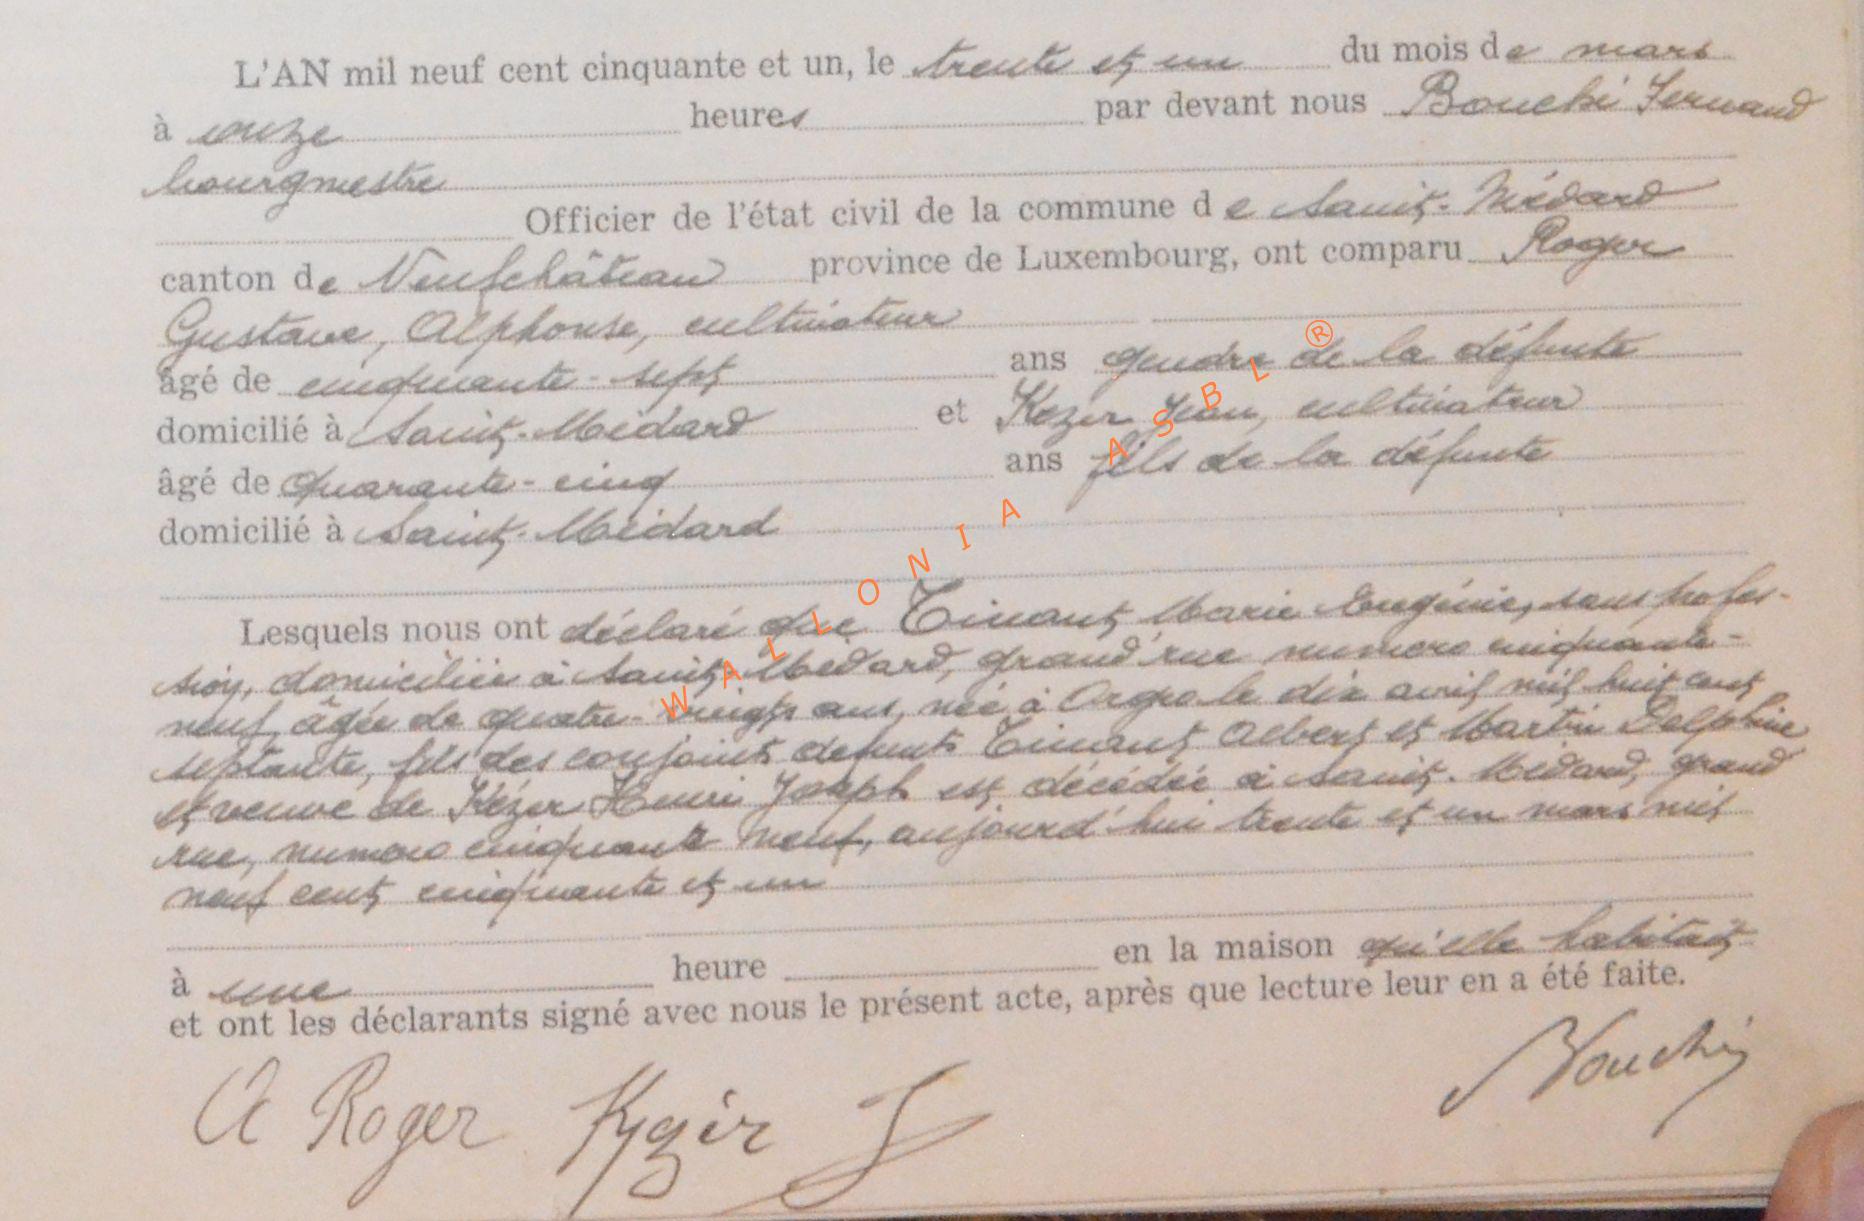 L'AN mil neuf cent cinquante et un, le trente et un du mois de mars
à onze heures par devant nous Bouché Fernand
bourgmestre
Officier de l'état civil de la commune de Saint-Médard
canton de Neufchâteau province de Luxembourg, ont comparu Roger
Gustave, Alphonse, cultivateur
âgé de cinquante-sept ans gendre de la défunte
domicilié à Saint-Médard et Kézer Jean, cultivateur
âgé de quarante-cinq ans fils de la défunte
domicilié à Saint-Médard
Lesquels nous ont déclaré que Tinant Marie Eugénie, sans profes-
sion, domiciliée à Saint-Médard, grand'rue numero cinquante-
neuf, âgée de quatre-vingts ans, née à Orgeo le dix avril mil huit cent
septante, fils des conjoints defunts Tinant Albert et Martin Delphine
et veuve de Kézer Henri Joseph est décédée à Saint-Médard, grand
rue, numero cinquante neuf, aujourd'hui trente et un mars mil
neuf cent cinquante et un
à une heure en la maison qu'elle habitait
et ont les déclarants signé avec nous le présent acte, après que lecture leur en a été faite.
A Roger Kyzér J Bouché
WALLONIA ASBL ®